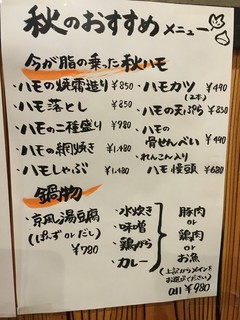 秋のおすすめメニュー
今が脂の乗った秋ハモ
・ハモの焼霜造り ¥850
・ハモ落とし ¥850
・ハモの二種盛り ¥980
・ハモの網焼き ¥1,480
・ハモしゃぶ ¥1,480
・ハモカツ(2本) ¥490
・ハモの天ぷら ¥850
・ハモの骨せんべい ¥490
・れんこん入りハモ饅頭 ¥680
鍋物
・京風湯豆腐
(ぽんず or だし)
¥780
・水炊き
・味噌
・鶏がら
・カレー
豚肉
or
鶏肉
or
お魚
(上記からメインをお選びください)
all ¥980